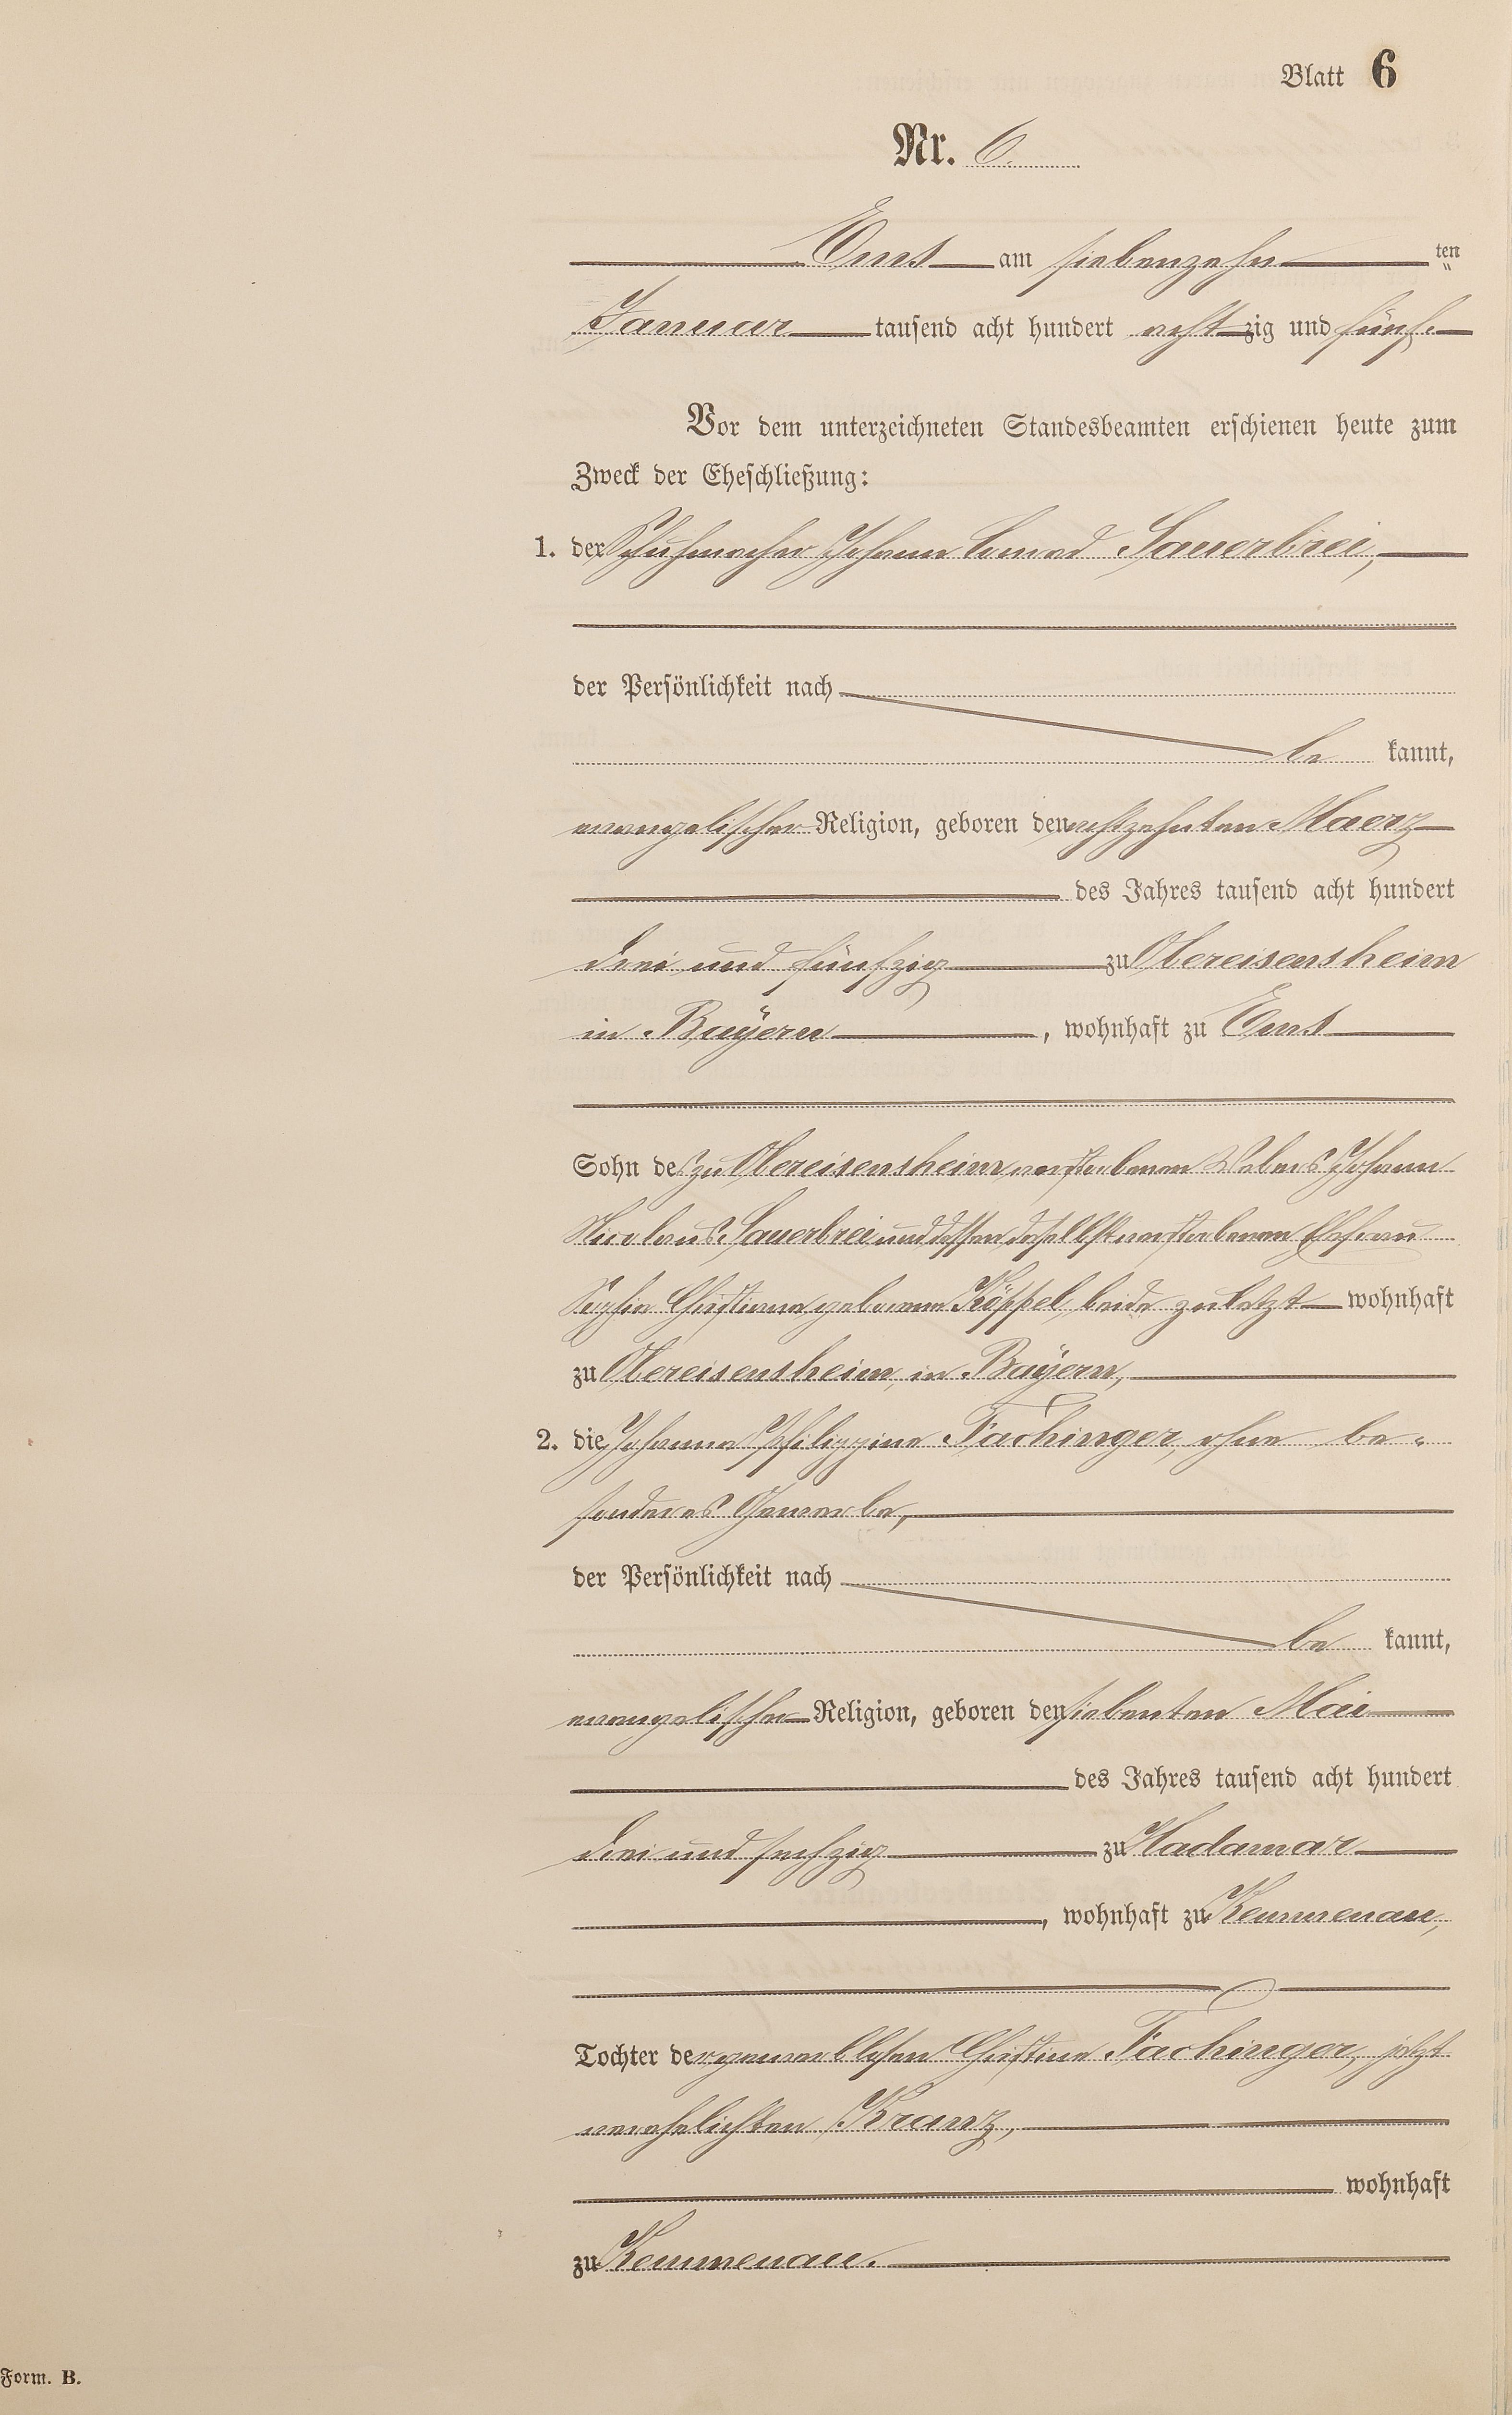 Blatt 6
Nr. 6.
Ems am siebenzehn ten
Januar tausend acht hundert acht zig und fünf.
Vor dem unterzeichneten Standesbeamten erschienen heute zum
Zweck der Eheschließung:
1. der Schuhmacher Johann Conrad Sauerbrei,
der Persönlichkeit nach
be kannt,
evangelischer Religion, geboren den achtzehnten Maerz
des Jahres tausend acht hundert
drei und fünfzig zu Obereisensheim
in Bayern, wohnhaft zu Ems
Sohn des zu Obereisensheim verstorbenen Webers Johann
Nicolaus Sauerbrei und dessen daselbst verstorbenen Ehefrau
Sophie Christiane geborenen Köppel, beide zuletzt wohnhaft
zu Obereisensheim, in Bayern,
2. die Johanna Philippine Fachinger, ohne be-
sonderes Gewerbe,
der Persönlichkeit nach
be kannt,
evangelischer Religion, geboren den siebenten Mai
des Jahres tausend acht hundert
drei und sechzig zu Hadamar
, wohnhaft zu Kemmenau,
Tochter der gewerblosen Christine Fachinger, jetzt
verehelichten Kranz,
wohnhaft
zu Kemmenau.
Form. B.